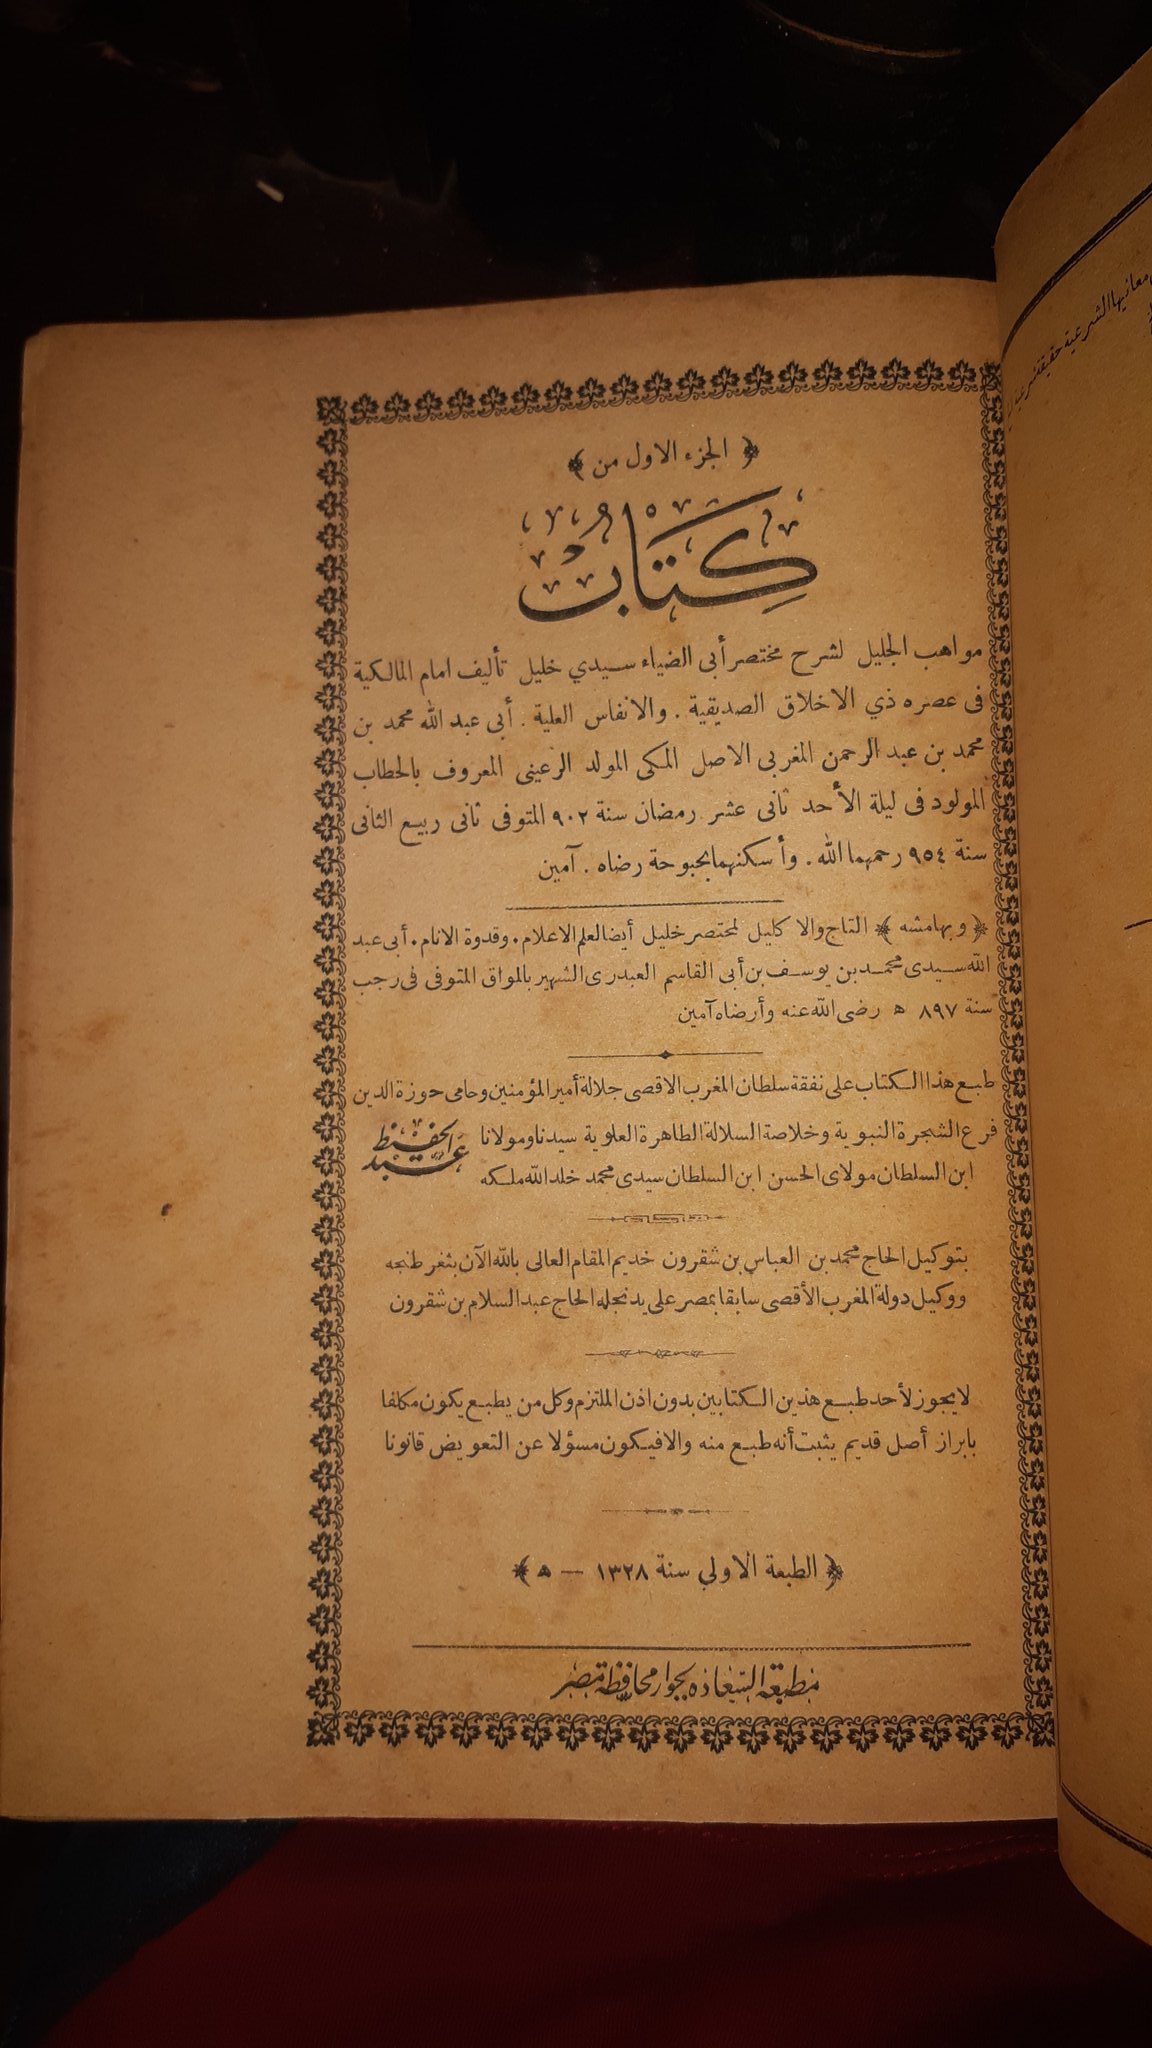 ﴿ الجزء الاول من ﴾
كِتَابُ
مواهب الجليل لشرح مختصر أبى الضياء سيدي خليل تأليف امام المالكية
فى عصره ذي الاخلاق الصديقية . والانفاس العلية . أبى عبد الله محمد بن
محمد بن عبد الرحمن المغربى الاصل المكى المولد الرعينى المعروف بالحطاب
المولود فى ليلة الأحد ثانى عشر رمضان سنة ٩٠٢ المتوفى ثانى ربيع الثانى
سنة ٩٥٤ رحمهما الله . وأسكنهما بحبوحة رضاه . آمين
﴿ وبهامشه ﴾ التاج والا كليل لمختصر خليل أيضا لعلم الاعلام . وقدوة الانام . أبى عبد
الله سيدى محمد بن يوسف بن أبى القاسم العبدرى الشهير بالمواق المتوفى فى رجب
سنة ٨٩٧ ه رضى الله عنه وأرضاه آمين
طبع هذا الكتاب على نفقة سلطان المغرب الاقصى جلالة أمير المؤمنين وحامى حوزة الدين
فرع الشجرة النبوية وخلاصة السلالة الطاهرة العلوية سيدنا ومولانا عبد الحفيظ
ابن السلطان مولاى الحسن ابن السلطان سيدى محمد خلد الله ملكه
بتوكيل الحاج محمد بن العباس بن شقرون خديم المقام العالى بالله الآن بثغر طنجه
ووكيل دولة المغرب الأقصى سابقا بمصر على يد نجله الحاج عبد السلام بن شقرون
لا يجوز لأحد طبع هذين الكتابين بدون اذن الملتزم وكل من يطبع يكون مكلفا
بابراز أصل قديم يثبت أنه طبع منه والا فيكون مسؤلا عن التعويض قانونا
﴿ الطبعة الاولي سنة ١٣٢٨ — ه ﴾
مطبعة السعادة بجوار محافظة مصر
معانيها الشرعية حقيقة شرعية